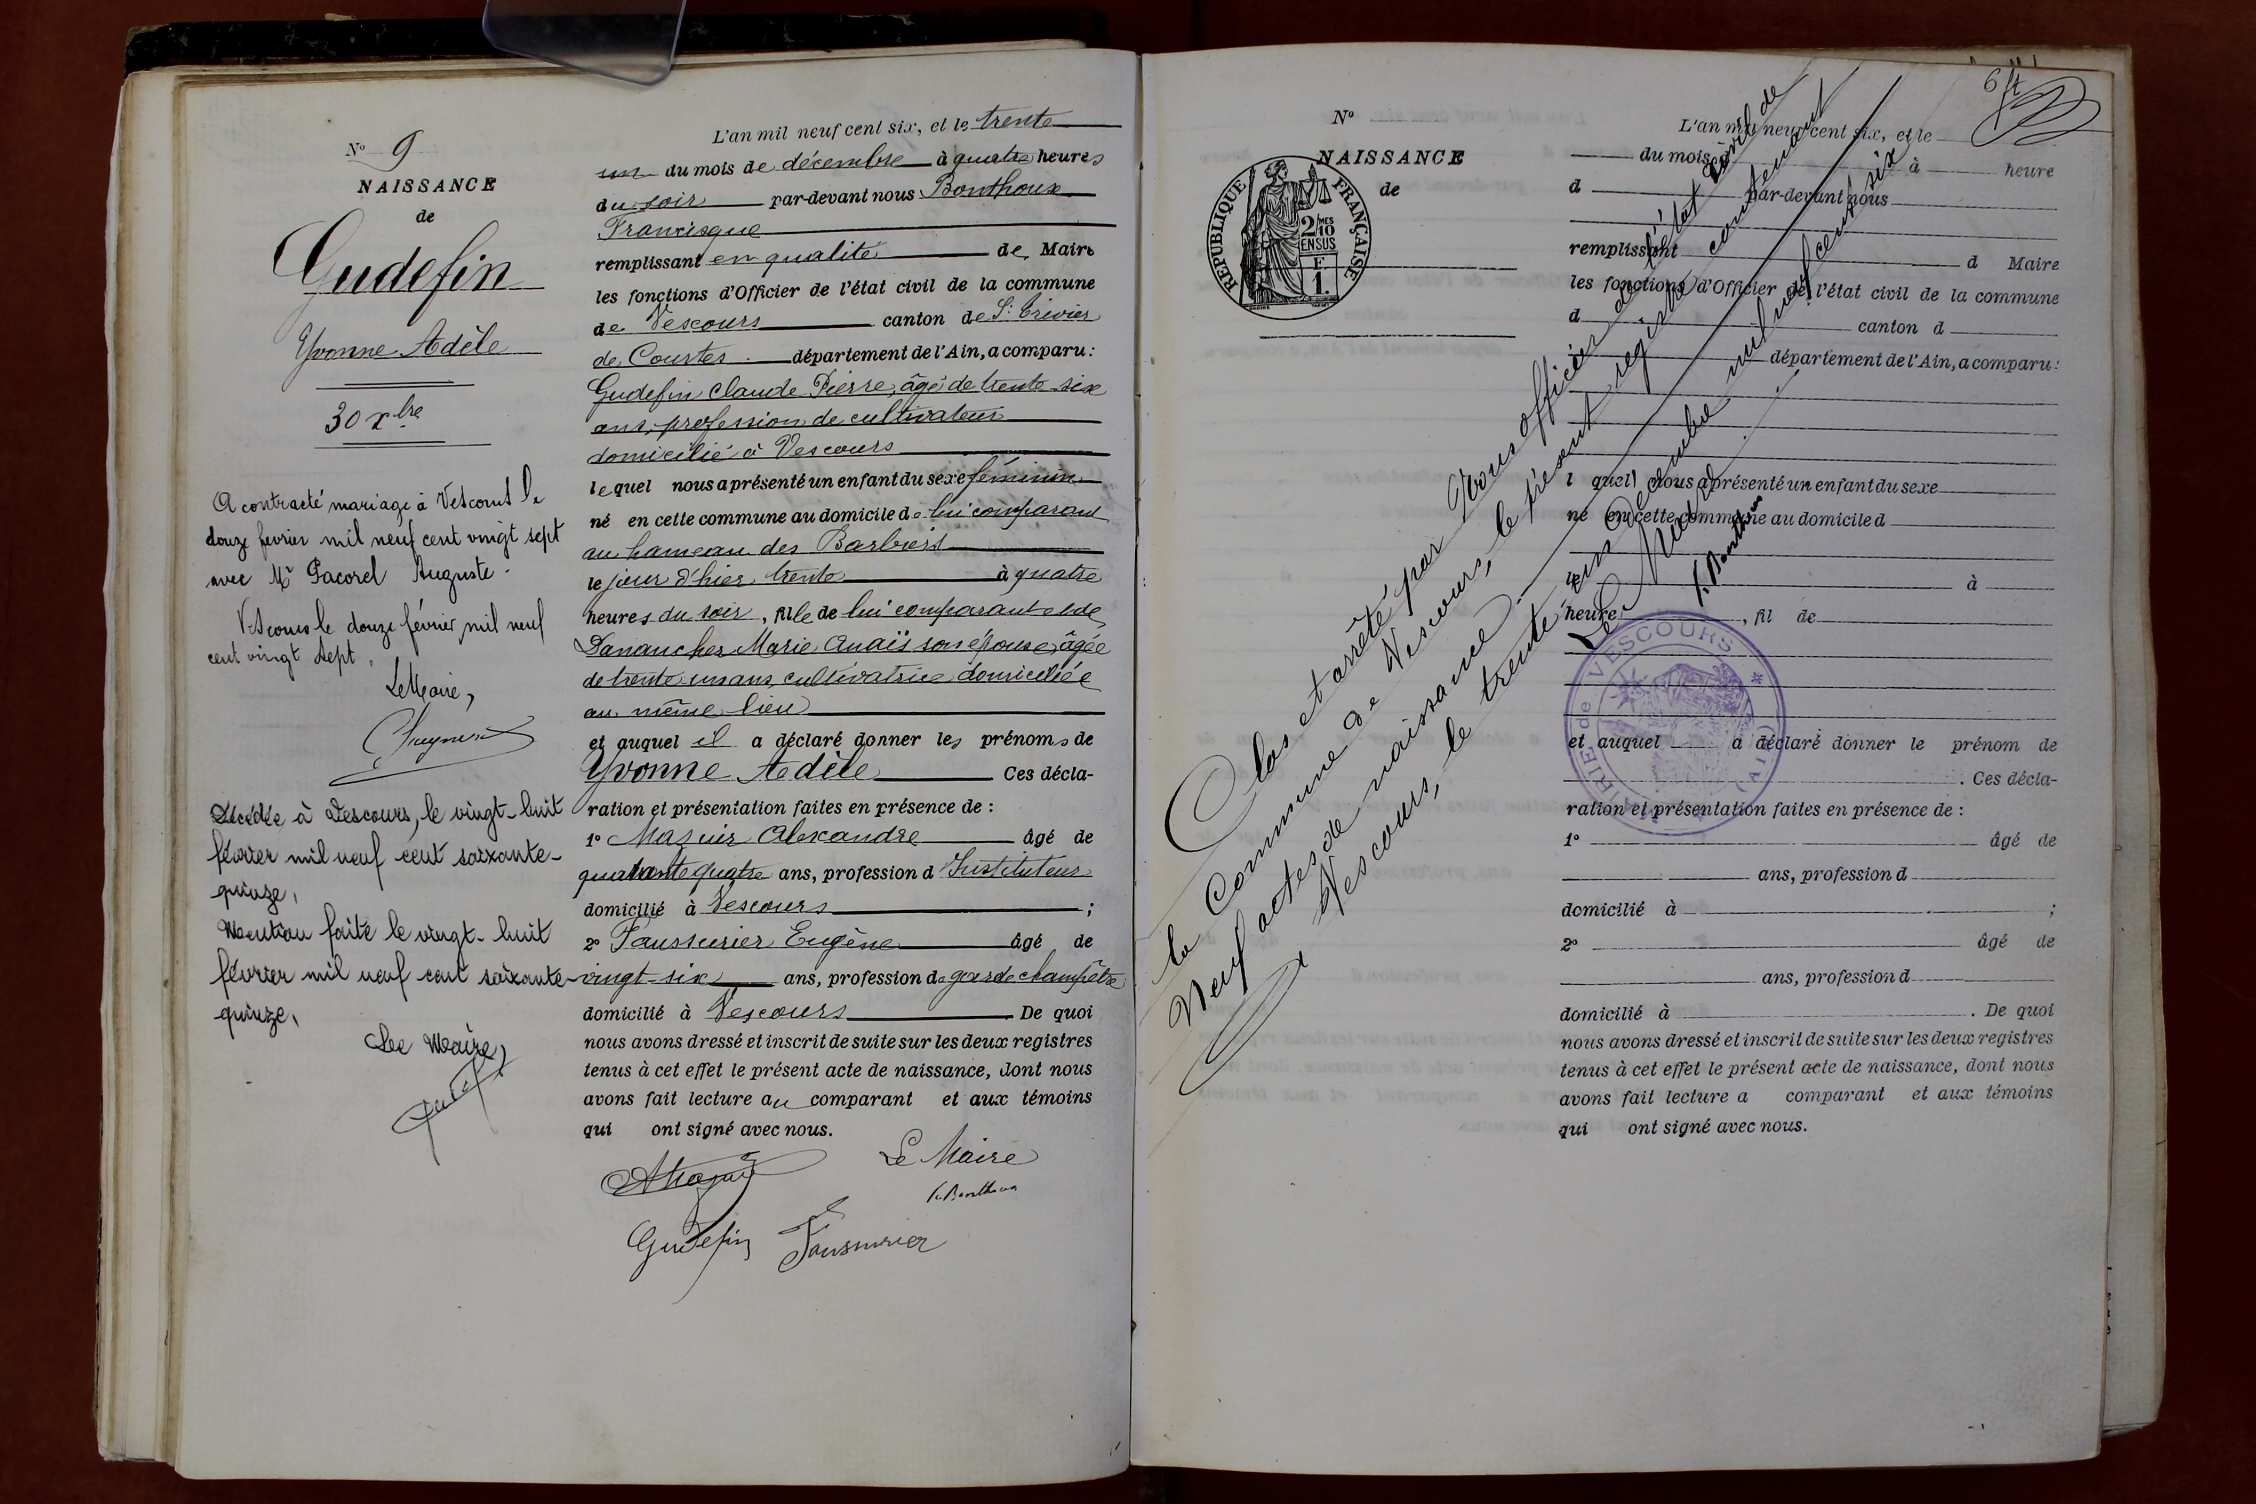 N° 9
NAISSANCE
de
Gudefin
Yvonne Adèle
30 xbre
A contracté mariage à Vescours le
douze février mil neuf cent vingt sept
avec Mr Pacorel Auguste.
Vescours le douze février mil neuf
cent vingt sept.
Le Maire,
Décédée à Vescours, le vingt-huit
février mil neuf cent soixante-
quinze,
Mention faite le vingt-huit
février mil neuf cent soixante-
quinze,
Le Maire,
L'an mil neuf cent six, et le trente
un du mois de décembre à quatre heures
du soir par-devant nous Bonthoux
Francisque
remplissant en qualité de Maire
les fonctions d'Officier de l'état civil de la commune
de Vescours canton de St Trivier
de Courtes département de l'Ain, a comparu :
Gudefin Claude Pierre, âgé de trente six
ans, profession de cultivateur
domicilié à Vescours
lequel nous a présenté un enfant du sexe féminin
né en cette commune au domicile de lui comparant
au hameau des Barbiers
le jour d'hier trente à quatre
heures du soir, fille de lui comparant et de
Dananches Marie Anaïs son épouse, âgée
de trente un ans, cultivatrice domiciliée
au même lieu
et auquel il a déclaré donner les prénoms de
Yvonne Adèle Ces décla-
ration et présentation faites en présence de :
1° Mazuir Alexandre âgé de
quarante quatre ans, profession d'Instituteur
domicilié à Vescours ;
2° Faussurier Eugène âgé de
vingt-six ans, profession de garde champêtre
domicilié à Vescours De quoi
nous avons dressé et inscrit de suite sur les deux registres
tenus à cet effet le présent acte de naissance, dont nous
avons fait lecture au comparant et aux témoins
qui ont signé avec nous.
AMazuir
Le Maire
F. Bonthoux
Gudefin Faussurier
64
N°
NAISSANCE
de
RÉPUBLIQUE FRANÇAISE
2/10 MES
EN SUS
F
1.
L'an mil neuf cent six, et le
du mois d à heure
d par-devant nous
remplissant d Maire
les fonctions d'Officier de l'état civil de la commune
d canton d
département de l'Ain, a comparu :
l quel nous a présenté un enfant du sexe
né en cette commune au domicile d
le à
heure , fil de
et auquel a déclaré donner le prénom de
. Ces décla-
ration et présentation faites en présence de :
1° âgé de
ans, profession d
domicilié à ;
2° âgé de
ans, profession d
domicilié à . De quoi
nous avons dressé et inscrit de suite sur les deux registres
tenus à cet effet le présent acte de naissance, dont nous
avons fait lecture a comparant et aux témoins
qui ont signé avec nous.
Clos et arrêté par Nous officier de l'état civil de
la Commune de Vescours, le présent registre contenant
Neuf actes de naissance.
A Vescours, le trente un décembre mil neuf cent six
Le Maire
F. Bonthoux
MAIRIE de VESCOURS
(AIN)